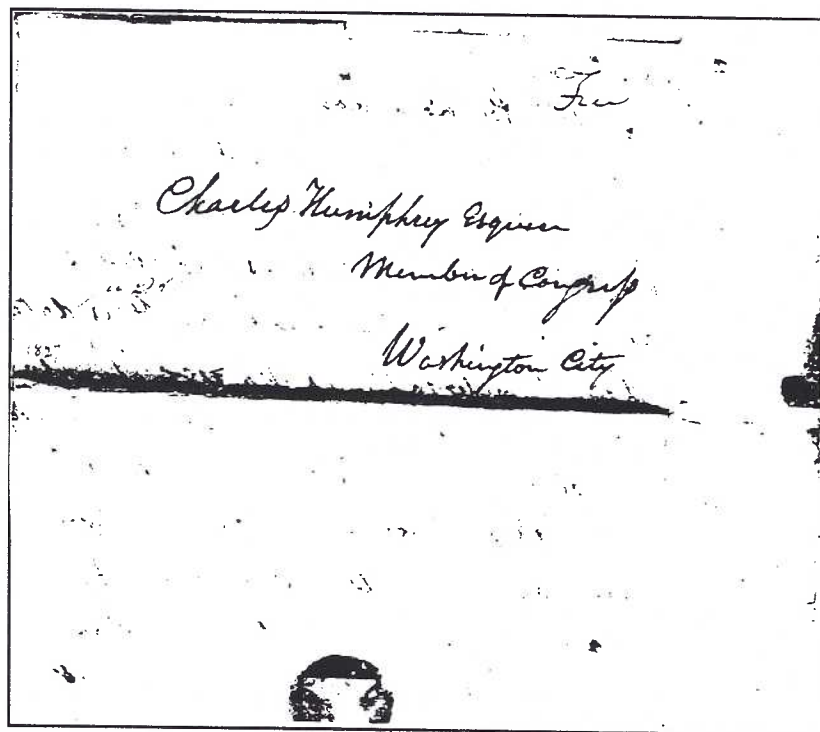 Free
Charles Humphrey Esquire
Member of Congress
Washington City